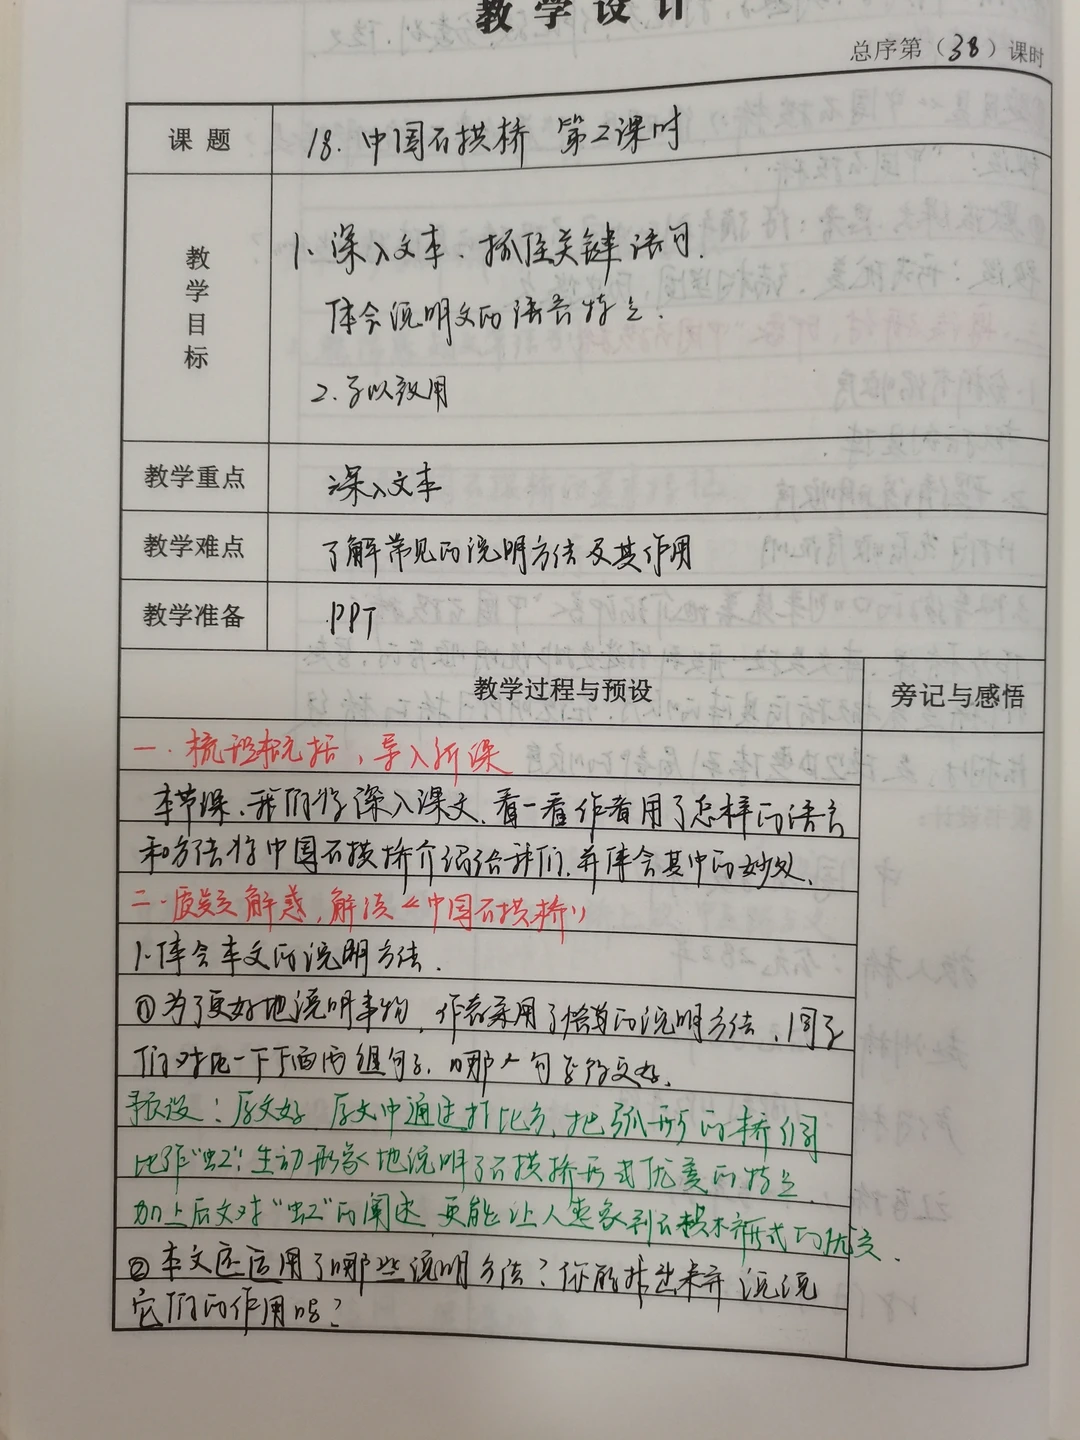 教学设计
总序第（38）课时
课题
18. 中国石拱桥 第2课时
教学目标
1. 深入文本、抓住关键语句.
体会说明文的语言特点.
2. 学以致用
教学重点
深入文本
教学难点
了解常见的说明方法及其作用
教学准备
PPT
教学过程与预设
旁记与感悟
一. 梳理概括，导入新课
本节课、我们将深入课文、看一看作者用了怎样的语言
和方法将中国石拱桥介绍给我们.并体会其中的妙处、
二. 质疑解惑，解读《中国石拱桥》
1. 体会本文的说明方法.
①为了更好地说明事物，作者采用了恰当的说明方法、同学
们对比一下下面两组句子，哪个句子写得更好.
预设：原文好 原文中通过打比方，把弧形的桥洞
比作"虹"！生动形象地说明了石拱桥形式优美的特点.
加上后文对"虹"的阐述 更能让人想象到石拱桥形式的优美.
②本文还运用了哪些说明方法？你能找出来并说说
它们的作用吗？